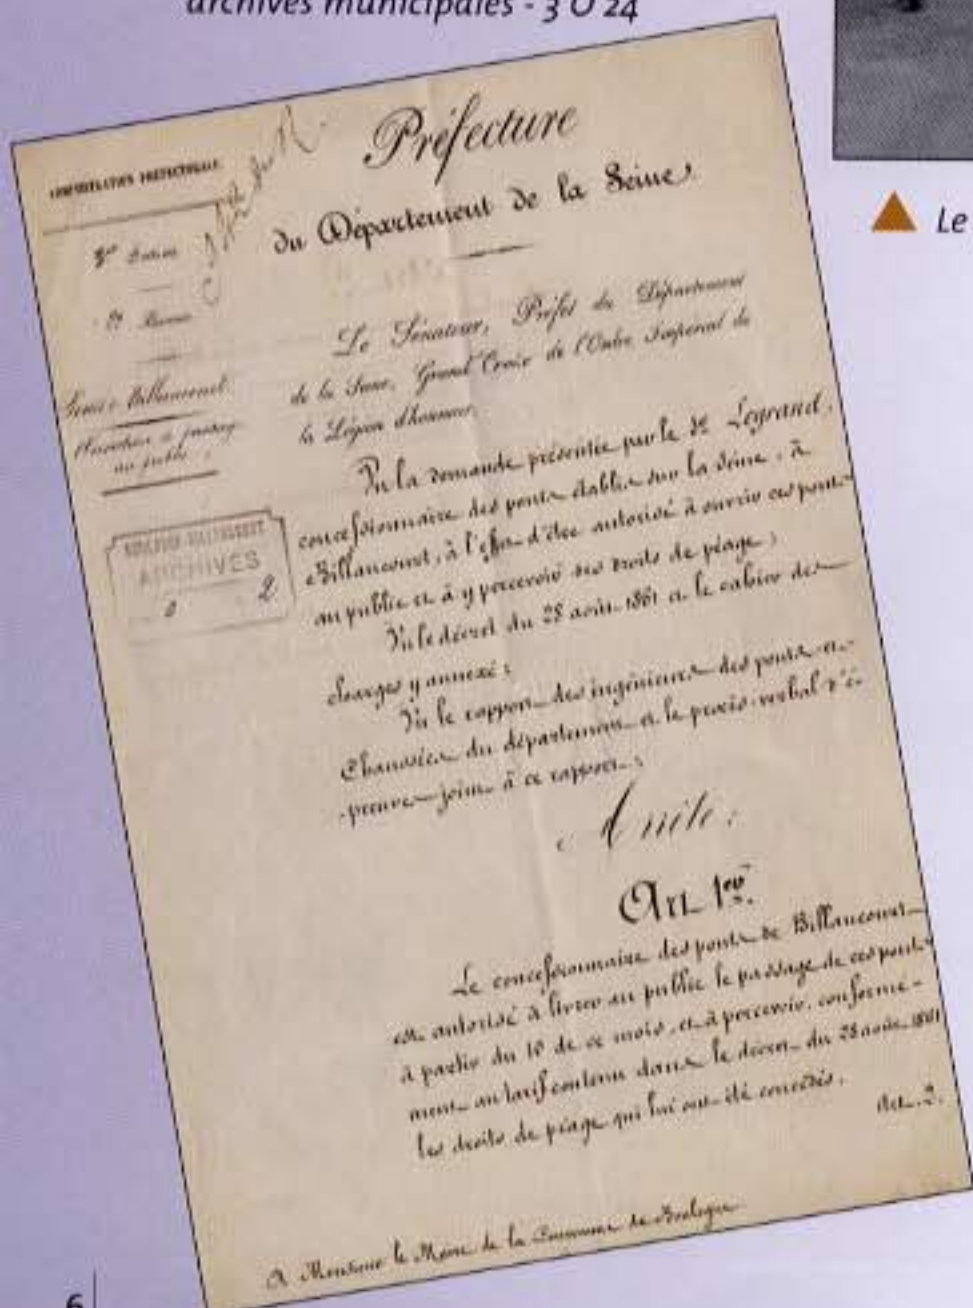 archives municipales - 3 O 24
Le
ADMINISTRATION PRÉFECTORALE
Préfecture
du Département de la Seine
Le Sénateur, Préfet du Département
de la Seine, Grand Croix de l'Ordre Impérial de
la Légion d'honneur,
Ponts de Billancourt
Ouverture du passage
au public
BOULOGNE-BILLANCOURT
ARCHIVES
2
Vu la demande présentée par le Sr. Legrand,
concessionnaire des ponts établis sur la Seine, à
Billancourt, à l'effet d'être autorisé à ouvrir ces ponts
au public et à y percevoir des droits de péage ;
Vu le décret du 28 août 1861 et le cahier des
charges y annexé ;
Vu le rapport des ingénieurs des ponts et
Chaussées du département et le procès-verbal d'é-
-preuves joint à ce rapport ;
Arrête :
Art. 1er.
Le concessionnaire des ponts de Billancourt
est autorisé à livrer au public le passage de ces ponts
à partir du 10 de ce mois, et à percevoir, conformé-
ment au tarif contenu dans le décret du 28 août 1861
les droits de péage qui lui ont été concédés.
Art. 2.
A Monsieur le Maire de la Commune de Boulogne
6